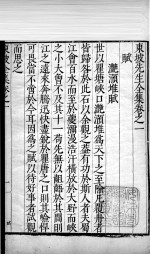 東坡先生全集卷之一
賦
灩澦堆賦
世以瞿唐峽口灩澦堆爲天下之至險凡覆舟者
皆歸咎於此石以余觀之蓋有功於斯人者夫蜀
江會百水而至於夔瀰漫浩汗橫放於大野而峽
之小大曾不及其十一苟先無以齟齬於其間則
江之遠來奔騰迅快盡銳於瞿唐之口則其嶮悍
可畏當不啻於今耳因爲之賦以待好事者試觀
而思之
東坡全集卷之一